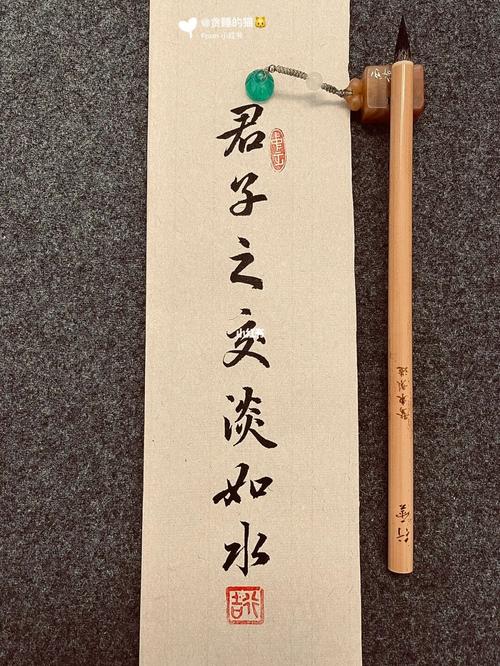 @贪睡的猫🐱
From 小红书
君子之交淡如水
小红书
行雲